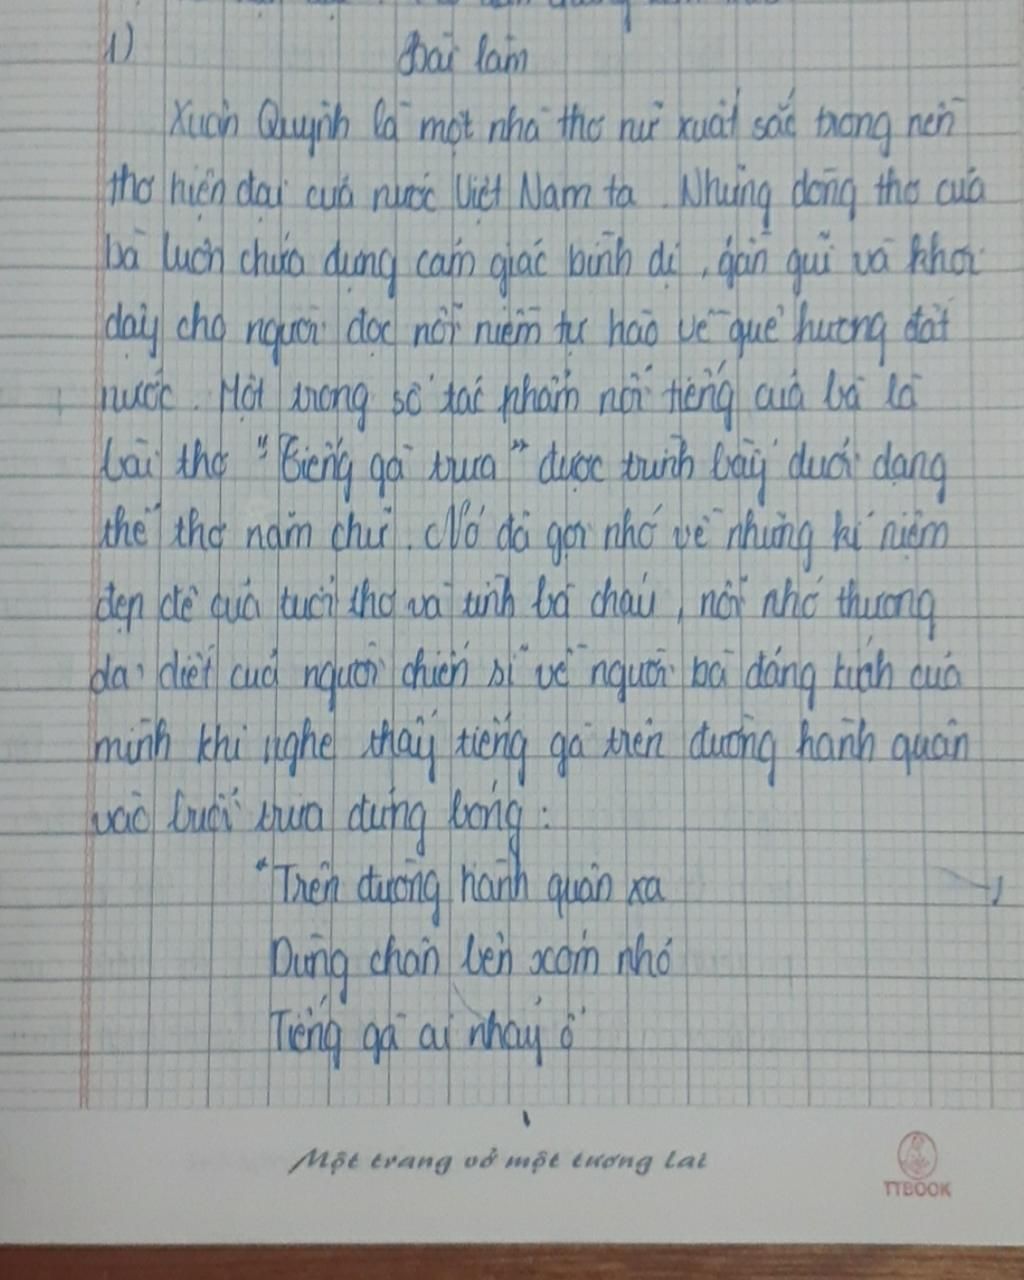 1)
Bài làm
Xuân Quỳnh là một nhà thơ nữ xuất sắc trong nền
thơ hiện đại của nước Việt Nam ta. Những dòng thơ của
bà luôn chứa đựng cảm giác bình dị, gần gũi và khơi
dậy cho người đọc nỗi niềm tự hào về quê hương đất
nước. Một trong số tác phẩm nổi tiếng của bà là
bài thơ "Tiếng gà trưa" được trình bày dưới dạng
thể thơ năm chữ. Nó đã gợi nhớ về những kỉ niệm
đẹp đẽ của tuổi thơ và tình bà cháu, nỗi nhớ thương
da diết của người chiến sĩ về người bà đáng kính của
mình khi nghe thấy tiếng gà trên đường hành quân
vào buổi trưa đứng bóng:
"Trên đường hành quân xa
Dừng chân bên xóm nhỏ
Tiếng gà ai nhảy ổ
Một trang vở một tương lai
TTBOOK